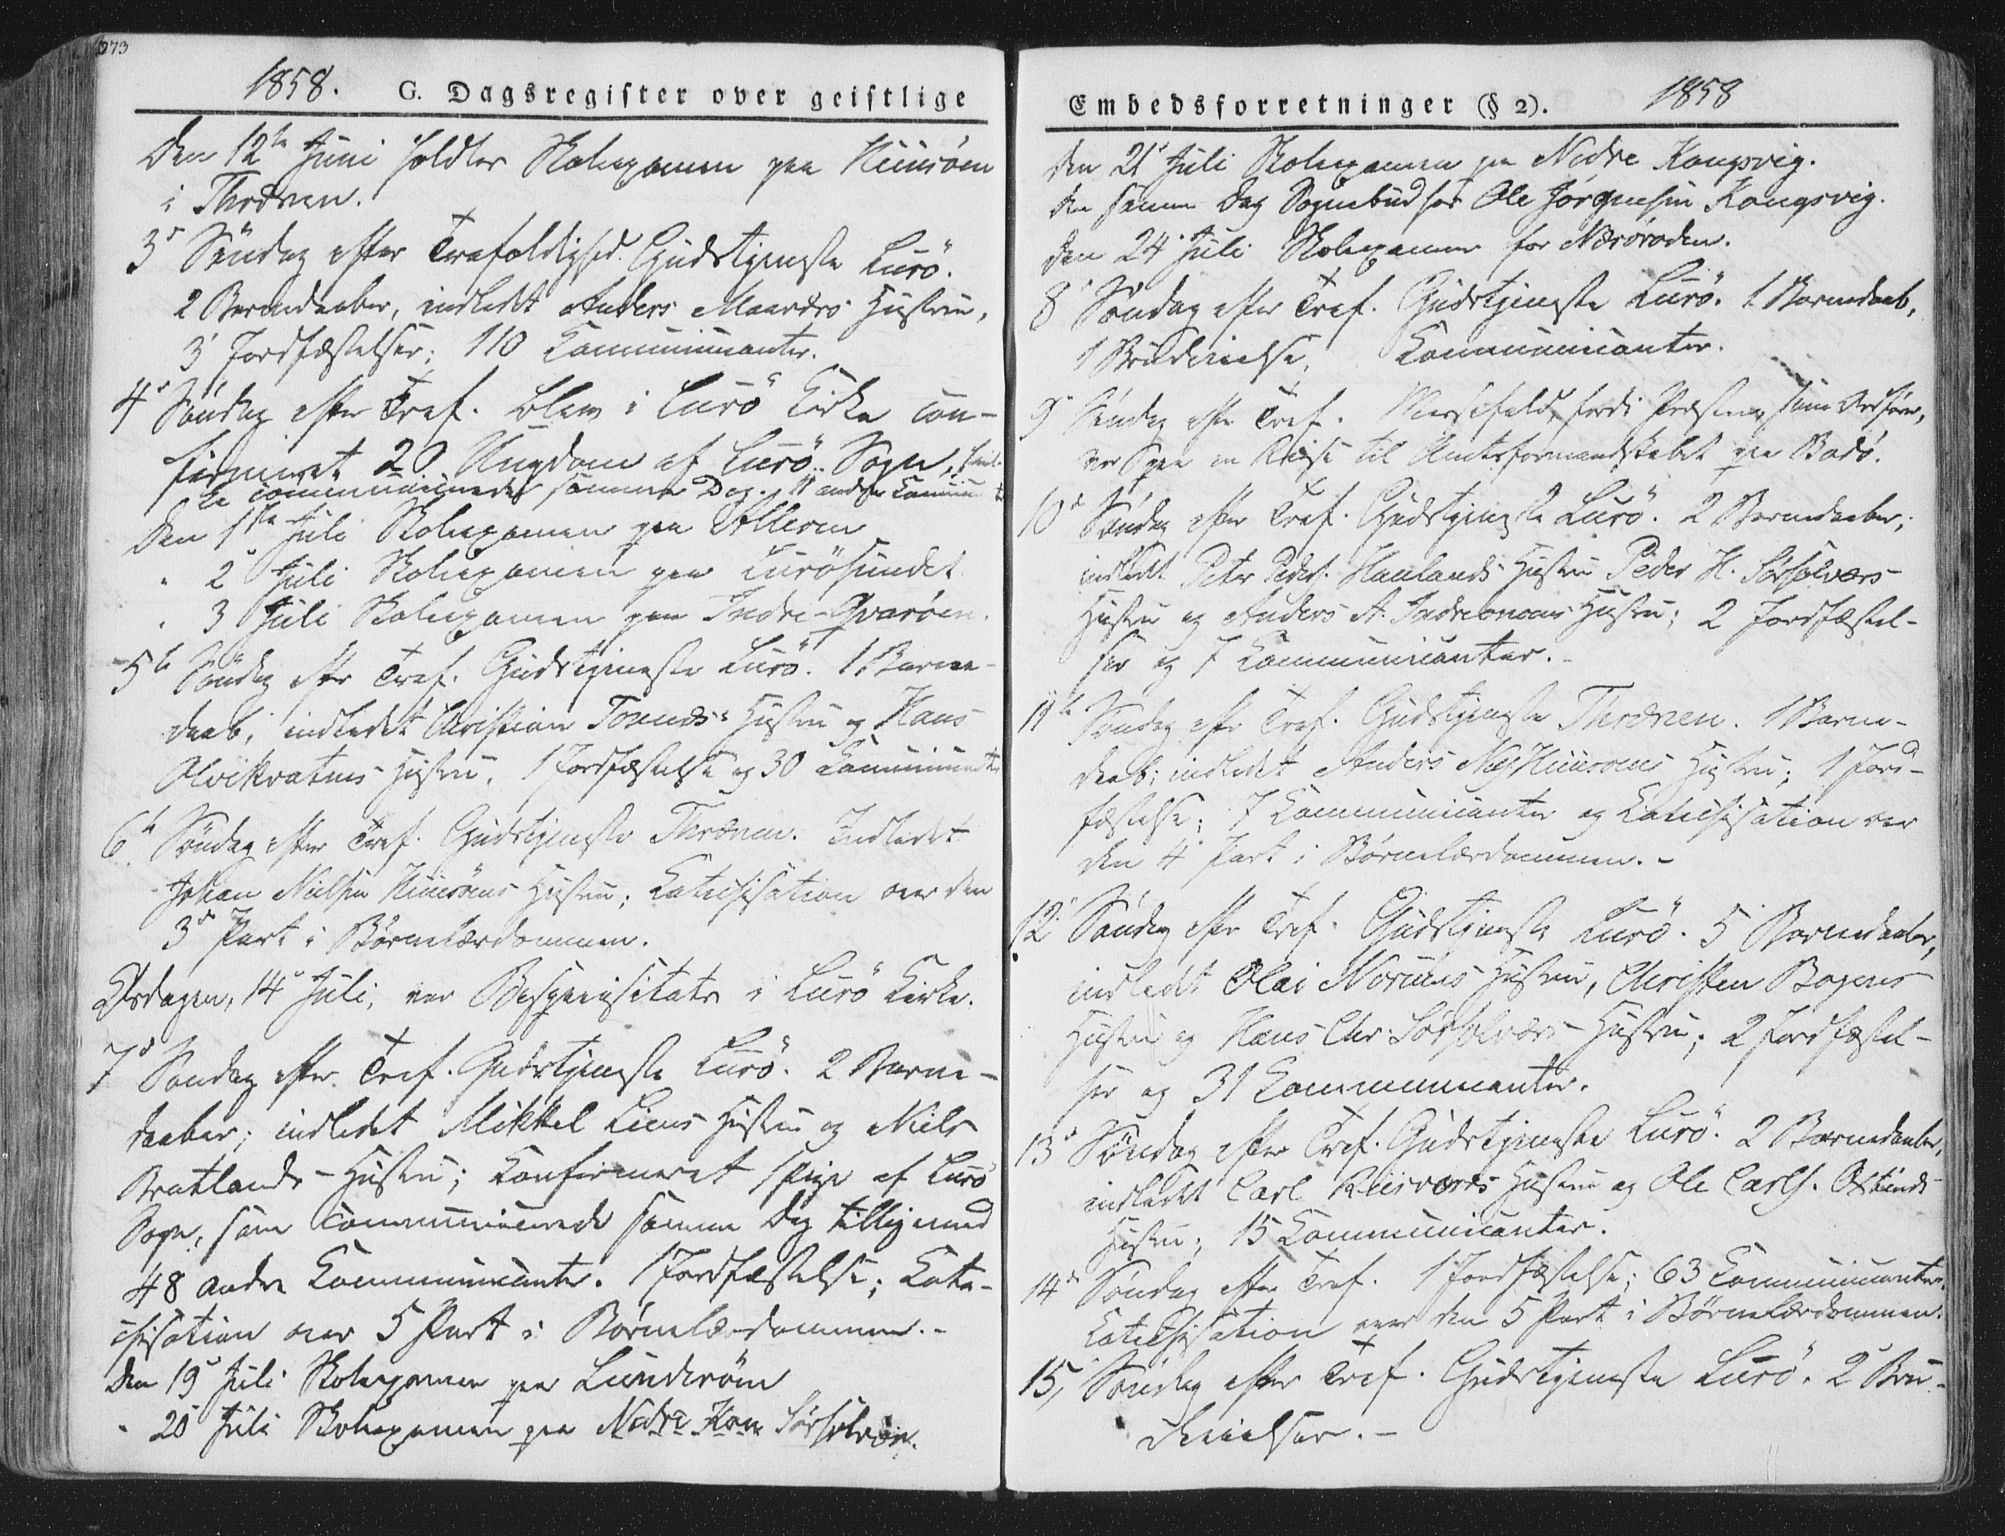 273
1858. G. Dagsregister over geistlige
Den 12te Juni holdtes Skoleexamen paa Huusöen
i Thrænen.
3d Söndag efter Trefoldighed. Gudstjeneste Lurö.
2 Barnedaaber, indledet Anders Maaværs Hustru,
3 Jordfæstelser; 110 Communicanter.
4d Söndag efter Tref. blev i Lurö Kirke con-
firmeret 20 Ungdom af Lurö Sogn,
communicerede samme Dag. 11 andre Communic
Den 1ste Juli Skoleexamen paa Alderen
" 2d Juli Skoleexamen paa Lurösundet
" 3 Juli Skoleexamen paa Indre-Qvaröen.
5te Söndag efter Tref. Gudstjeneste Lurö. 1 Barne-
daab, indledet Christian Tonnæs's Hustru og Hans
Olvikvatnes Hustru, 1 Jordfæstelse og 30 Communicanter
6te Söndag efter Tref. Gudstjeneste Thrænen. Indledet
Johan Nielsen Huusöens Hustru; Catechisation over den
3d Part i Børnelærdommen.
Onsdagen, 14d Juli, var Bispevisitats i Lurö Kirke.
7d Söndag efter Tref. Gudstjeneste Lurö. 2 Barne-
daaber; indledet Mikkel Liens Hustru og Niels
Bratlands Hustru; Confirmeret 1 Pige af Lurö
Sogn, som communicerede samme Dag tilligemed
48 andre Communicanter. 1 Jordfæstelse; Cate-
chisation over 5 Part i Børnelærdommen.-
Den 19d Juli Skoleexamen paa Lunderöen
" 20d Juli Skoleexamen paa Nedre Kon Sörsolvær.
Embedsforretninger (§ 2). 1858
Den 21d Juli Skoleexamen paa Nedre Kongsvig.
Den samme Dag Sognebud hos Ole Jörgensen Kongsvig.
Den 24d Juli Skoleexamen for Næröroden.
8d Söndag efter Tref. Gudstjeneste Lurö. 1 Barnedaab,
1 Brudevielse, Communicanter.
9d Söndag efter Tref. Messefald, fordi Præsten, som Ordförer,
var paa en Reise til Amtsformandskabet paa Bodö.
10d Söndag efter Tref. Gudstjeneste Lurö. 2 Barnedaaber,
indledt Peter Peders. Haulands Hustru Peder H. Sörsolværs
Hustru og Anders A. Hustru; 2 Jordfæstel-
ser og 7 Communicanter.-
11te Söndag efter Tref. Gudstjeneste Thrænen. 1 Barne-
daab; indledet Anders Huusöens Hustru; 1 Jord-
fæstelse; 7 Communicanter og Catechisation over
den 4d Part i Børnelærdommen.-
12d Söndag efter Tref. Gudstjeneste Lurö. 5 Barnedaaber,
indledt Olai Hustru, Christen Bogens
Hustru og Hans Chr. Sörsolværs Hustru; 2 Jordfæstel-
ser og 31 Communicanter.
13d Söndag efter Tref. Gudstjeneste Lurö. 2 Barnedaaber,
indledet Carl Reisværs Hustru og Ole Carls.
Hustru; 15 Communicanter.
14d Söndag efter Tref. 1 Jordfæstelse; 63 Communicanter.
Catechisation over den 5 Part i Børnelærdommen.
15, Söndag efter Tref. Gudstjeneste Lurö. 2 Bru-
devielser.-